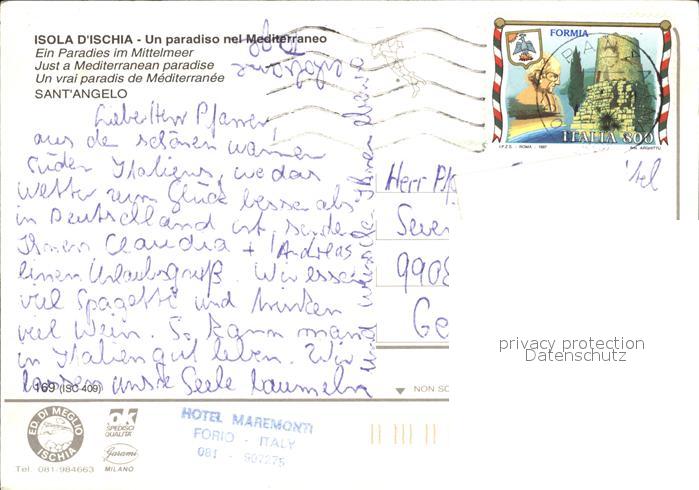 ISOLA D'ISCHIA - Un paradiso nel Mediterraneo
Ein Paradies im Mittelmeer
Just a Mediterranean paradise
Un vrai paradis de Méditerranée
SANT'ANGELO
Lieber Herr Pfarrer,
aus de schönen warmen
Süden Italiens, wo das
Wetter zum Glück besser als
in Deutschland ist, senden
Ihnen Claudia + Andreas
einen Urlaubsgruß. Wir essen
viel Spagetti und trinken
viel Wein. So kann man
in Italien gut leben. Wir
lassen unsre Seele baumeln
und wünsche Ihnen ebenso
schöne Tage
Herr Pf
9908
Ge
FORMIA
ITALIA 800
I.P.Z.S. - ROMA - 1997
169 (ISC 409)
NON SC
ED. DI MEGLIO
ISCHIA
Tel. 081-984663
ok
SPEDISCI
QUALITÀ
Garami
MILANO
HOTEL MAREMONTI
FORIO - ITALY
081 -
privacy protection
Datenschutz